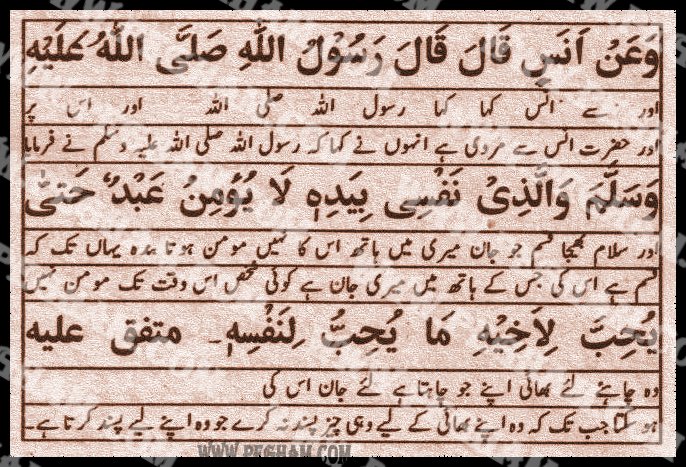 وَعَنْ اَنَسٍ قَالَ قَالَ رَسُوْلُ اللّٰهِ صَلَّى اللّٰهُ عَلَيْهِ
اور سے انس کہا کہا رسول اللہ صلی اللہ اور اس پر
اور حضرت انس سے مروی ہے انہوں نے کہا کہ رسول اللہ صلی اللہ علیہ وسلم نے فرمایا
وَسَلَّمَ وَالَّذِیْ نَفْسِی بِیَدِہٖ لَا یُؤْمِنُ عَبْدٌ حَتیّٰ
اور سلام بھیجا قسم جو جان میری میں ہاتھ اس کا نہیں مومن ہوتا بندہ یہاں تک کہ
قسم ہے اس کی جس کے ہاتھ میں میری جان ہے کوئی شخص اس وقت تک مومن نہیں
یُحِبَّ لِاَخِیْهِ مَا یُحِبُّ لِنَفْسِهٖ۔ متفق علیہ
وہ چاہئے لئے بھائی اپنے جو چاہتا ہے لئے جان اس کی
ہو سکتا جب تک کہ وہ اپنے بھائی کے لیے وہی چیز پسند نہ کرے جو وہ اپنے لیے پسند کرتا ہے۔
WWW.PEGHAM.COM